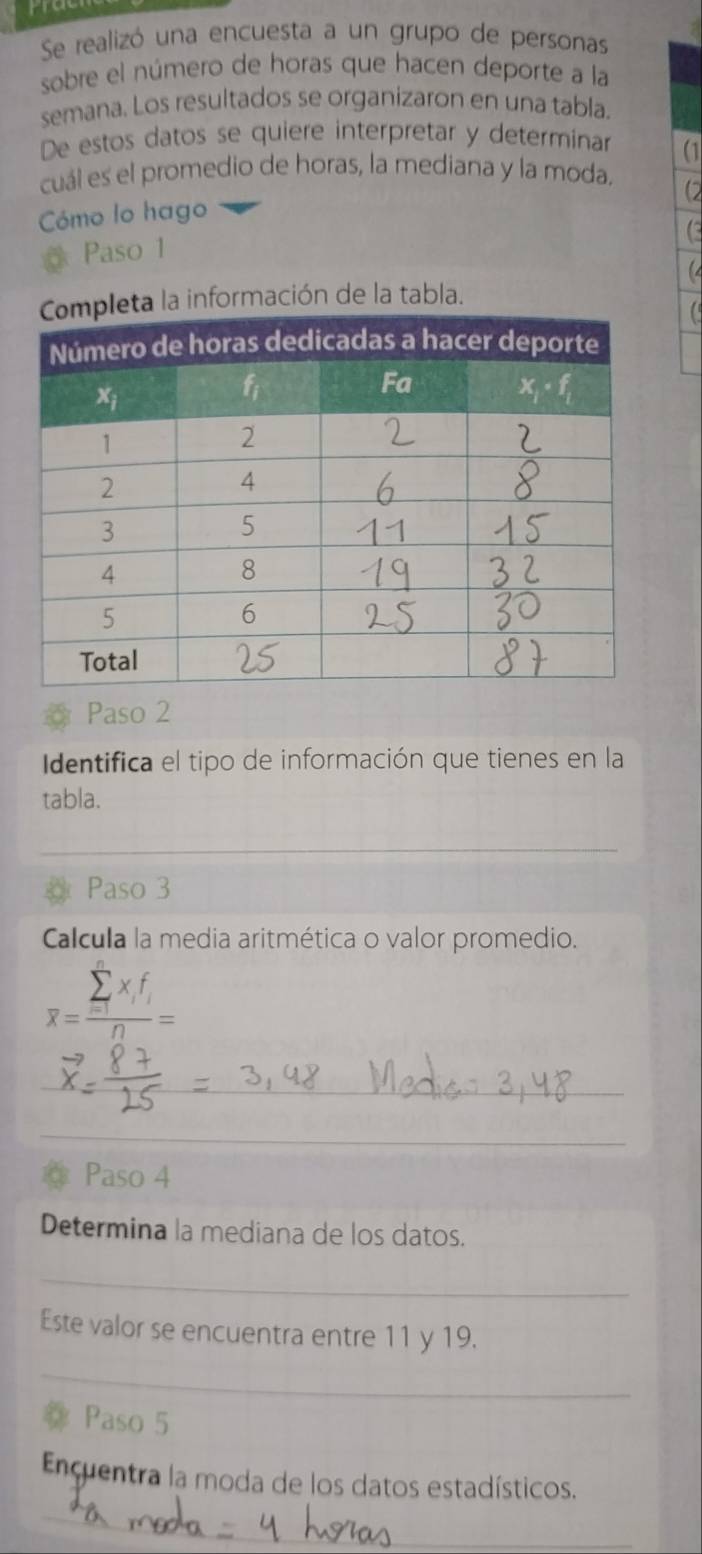 Se realizó una encuesta a un grupo de personas
sobre el número de horas que hacen deporte a la
semana. Los resultados se organizaron en una tabla.
De estos datos se quiere interpretar y determinar
cuál es el promedio de horas, la mediana y la moda.
Cómo lo hago
Paso 1
Completa la información de la tabla.
Número de horas dedicadas a hacer deporte
xᵢ fᵢ Fa xᵢ · fᵢ
1 2 2 2
2 4 6 8
3 5 11 15
4 8 19 32
5 6 25 30
Total 25 87
Paso 2
Identifica el tipo de información que tienes en la
tabla.
Paso 3
Calcula la media aritmética o valor promedio.
x̄ = ∑ⁿᵢ₌₁ xᵢfᵢ / n =
x⃗ = 87/25 = 3,48 Media = 3,48
Paso 4
Determina la mediana de los datos.
Este valor se encuentra entre 11 y 19.
Paso 5
Encuentra la moda de los datos estadísticos.
La moda = 4 horas
(1
(2
(3